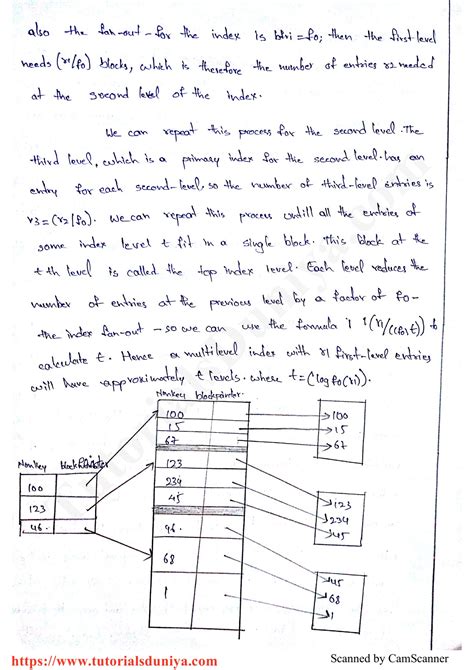 also the fan-out-for the index is bfri=fo; then the first level
needs (r1/fo) blocks, which is therefore the number of entries r2 needed
at the second level of the index.
We can repeat this process for the second level. The
third level, which is a primary index for the second level. has an
entry for each second-level, so the number of third-level entries is
r3=(r2/fo). we can repeat this process untill all the entries of
some index level t fit in a single block. This block at the
t th level is called the top index level. Each level reduces the
number of entries at the previous level by a factor of fo-
the index fan-out - so we can use the formula to
calculate t. Hence a multilevel index with r1 first-level entries
will have approximately t levels. where t=(log fo(ri)).
Nonkey blockpointer
100
15
67
123
234
45
96
68
1
Nonkey block Pointer
100
123
46
100
15
67
123
234
45
45
68
1
https://www.tutorialsduniya.com
Scanned by CamScanner